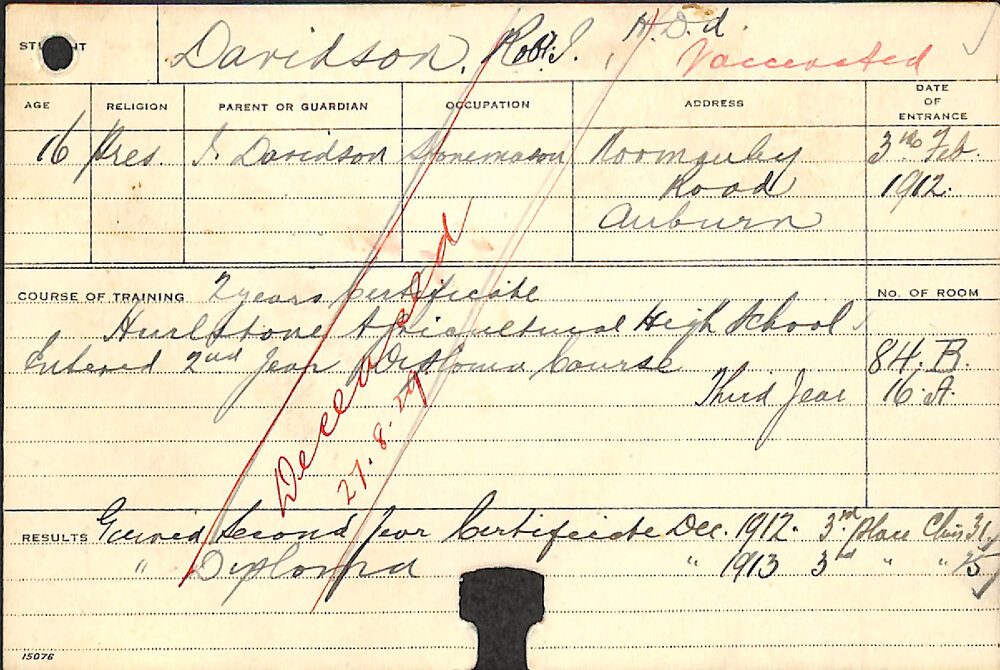 STUDENT Davidson, Robt. J. H.D.d.
Vaccinated
AGE RELIGION PARENT OR GUARDIAN OCCUPATION ADDRESS DATE OF ENTRANCE
16 Pres. J. Davidson Stonemason Road 3rd Feb.
1912.
Auburn
COURSE OF TRAINING 2 years Certificate No. OF ROOM
Hurlstone Agricultural High School
Entered 2nd Year Diploma Course 84. B.
Third Year 16. A.
Deceased
27. 8.
RESULTS Gained Second Year Certificate Dec. 1912. 3rd place Class 31
" Diploma " 1913 3rd " "
15076